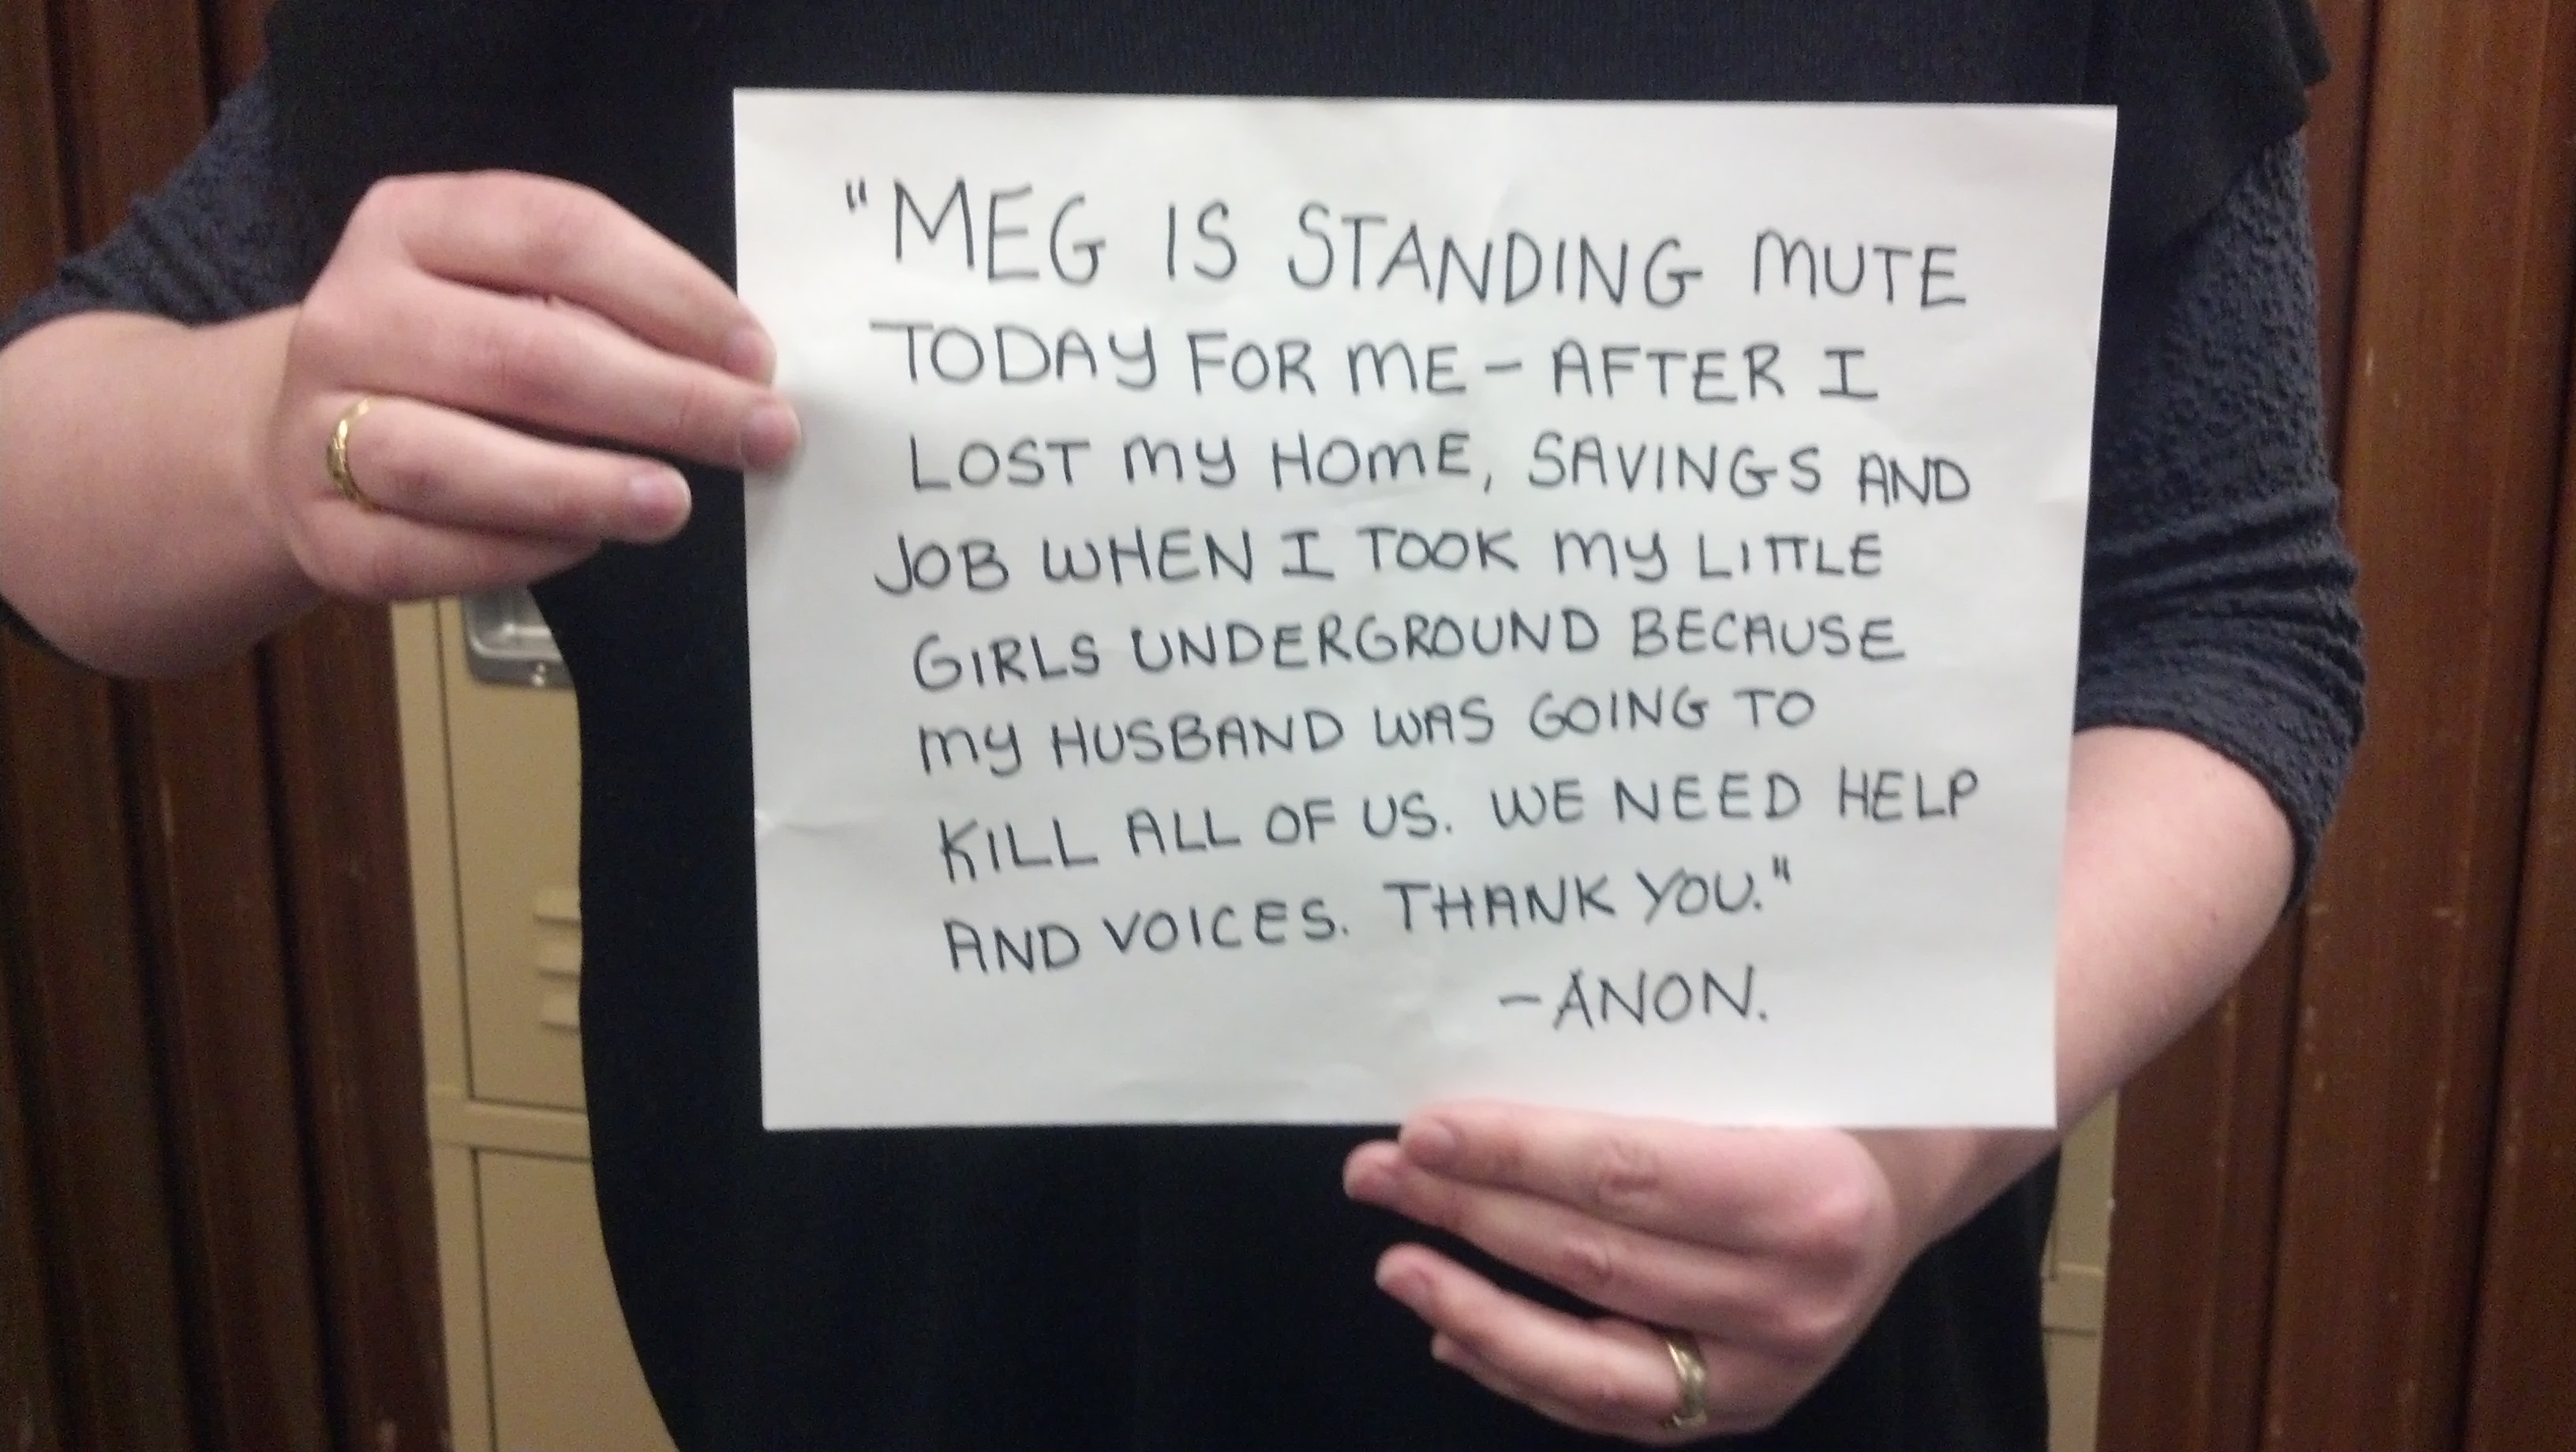 "MEG IS STANDING MUTE
TODAY FOR ME - AFTER I
LOST MY HOME, SAVINGS AND
JOB WHEN I TOOK MY LITTLE
GIRLS UNDERGROUND BECAUSE
MY HUSBAND WAS GOING TO
KILL ALL OF US. WE NEED HELP
AND VOICES. THANK YOU."
-ANON.